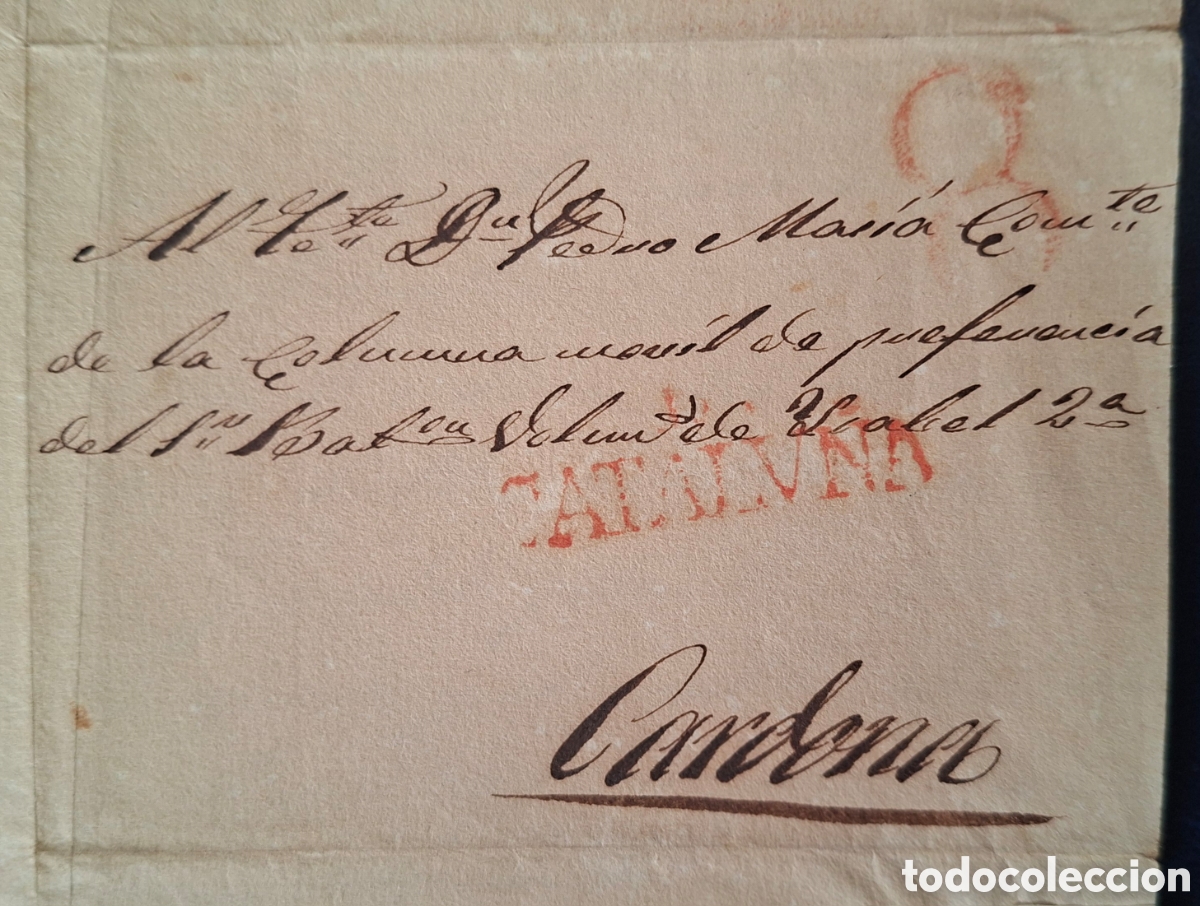 8
Al Te.te Dn Pedro María Com.te
de la Columna movil de preferencia
del 1.er Bat.on Volun.s de Ysabel 2.a
CATALUÑA
Cardona
todocoleccion